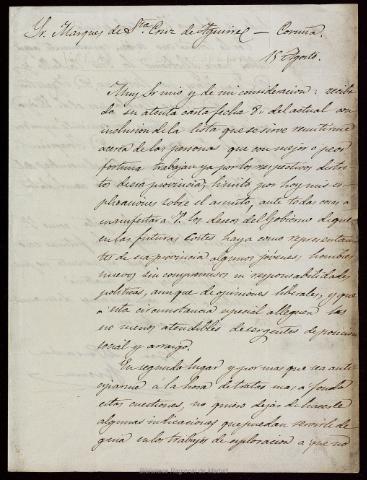 Sr. Marques de Sta. Cruz de Aguirre - Coruña.
15 Agosto.
Muy Sr. mio y de mi consideracion: recibi
da su atenta carta fecha 8 del actual con
inclusion de la lista que se sirve remitirme
acerca de las personas que con mejor o peor
fortuna trabajan ya por los respectivos distri
tos de esa provincia, limito por hoy mis es
plicaciones sobre el asunto, ante todas cosas a
manifestar a V. los deseos del Gobierno de que
en las futuras Cortes haya como representan
tes de esa provincia algunos jóvenes, hombres
nuevos sin compromisos ni responsabilidades
politicas, aunque de opiniones liberales, y que
a esta circunstancia especial alleguen las
no menos atendibles de ser gentes de posicion
social y arraigo.
En segundo lugar y por mas que sea anti
ciparme a la hora de tratar mas a fondo
estas cuestiones, no quiero dejar de hacerle
algunas indicaciones que puedan servirle de
guia en los trabajos de esploracion a que no